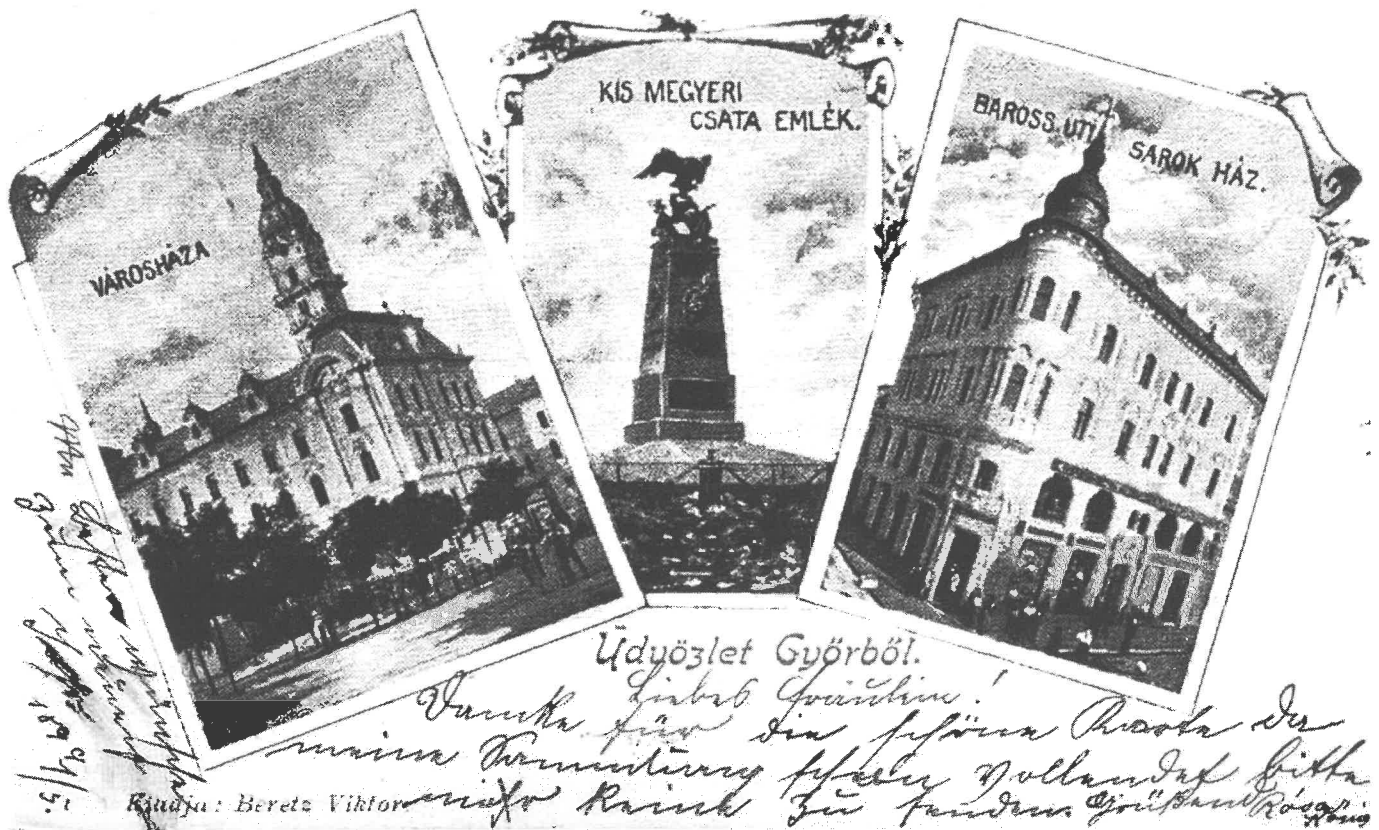 VÁROSHÁZA
KIS MEGYERI
CSATA EMLÉK.
BAROSS UTI
SAROK HÁZ.
Üdvözlet Győrből.
Liebes Fräulein!
Dancke für die schöne Karte da
meine Sammlung schon vollendet bitte
mehr keine zu senden. Grüßend Rósa
König
Kiadja: Beretz Viktor